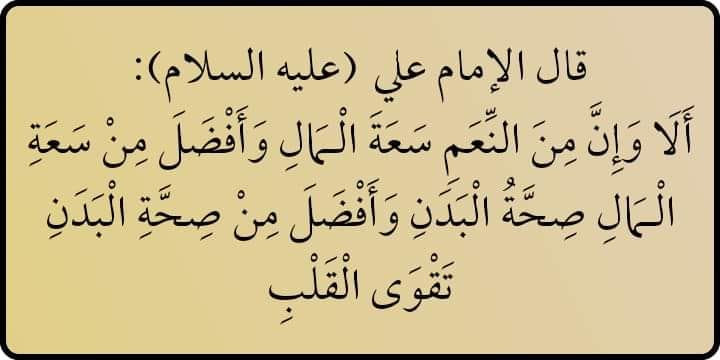 قال الإمام علي (عليه السلام):
أَلَا وَإِنَّ مِنَ النِّعَمِ سَعَةَ الْمَالِ وَأَفْضَلَ مِنْ سَعَةِ
الْمَالِ صِحَّةُ الْبَدَنِ وَأَفْضَلَ مِنْ صِحَّةِ الْبَدَنِ
تَقْوَى الْقَلْبِ